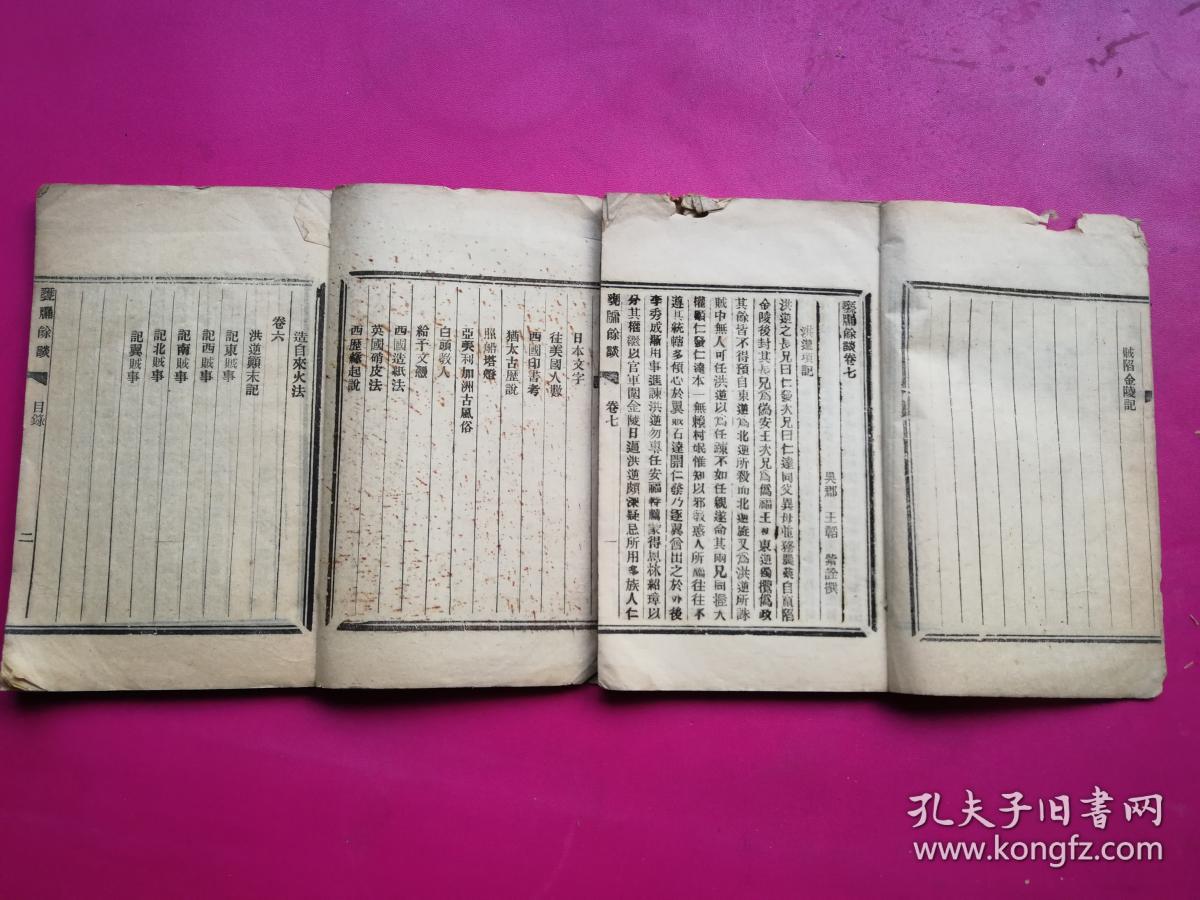 賊陷金陵記
甕牖餘談卷七
吳郡 王韜 紫詮撰
洪逆項記
洪逆之長兄曰仁發次兄曰仁達同父異母並務農業自竄陷
金陵後封其長兄爲僞安王次兄爲僞福王時東逆獨攬僞政
其餘皆不得預自東逆爲北逆所殺而北逆旋又爲洪逆所誅
賊中無人可任洪逆以爲任疎不如任親遂命其兩兄同握大
權顧仁發仁達本一無賴村氓惟知以邪教惑人所爲往往不
遵其統轄多傾心於翼賊石達開仁發乃逐翼酋出之於外後
李秀成漸用事進諫洪逆勿專任安福特薦蒙得恩林紹璋以
分其權繼以官軍圍金陵日逼洪逆頗深疑忌所用多族人仁
甕牖餘談 卷七 一
日本文字
往美國人數
西國印書考
猶太古歷說
照船塔燈
亞美利加洲古風俗
白頭教人
給予文憑
西國造紙法
英國硝皮法
西歷緣起說
造自來火法
卷六
洪逆顛末記
記東賊事
記西賊事
記南賊事
記北賊事
記翼賊事
甕牖餘談 目錄 二
孔夫子旧书网
www.kongfz.com